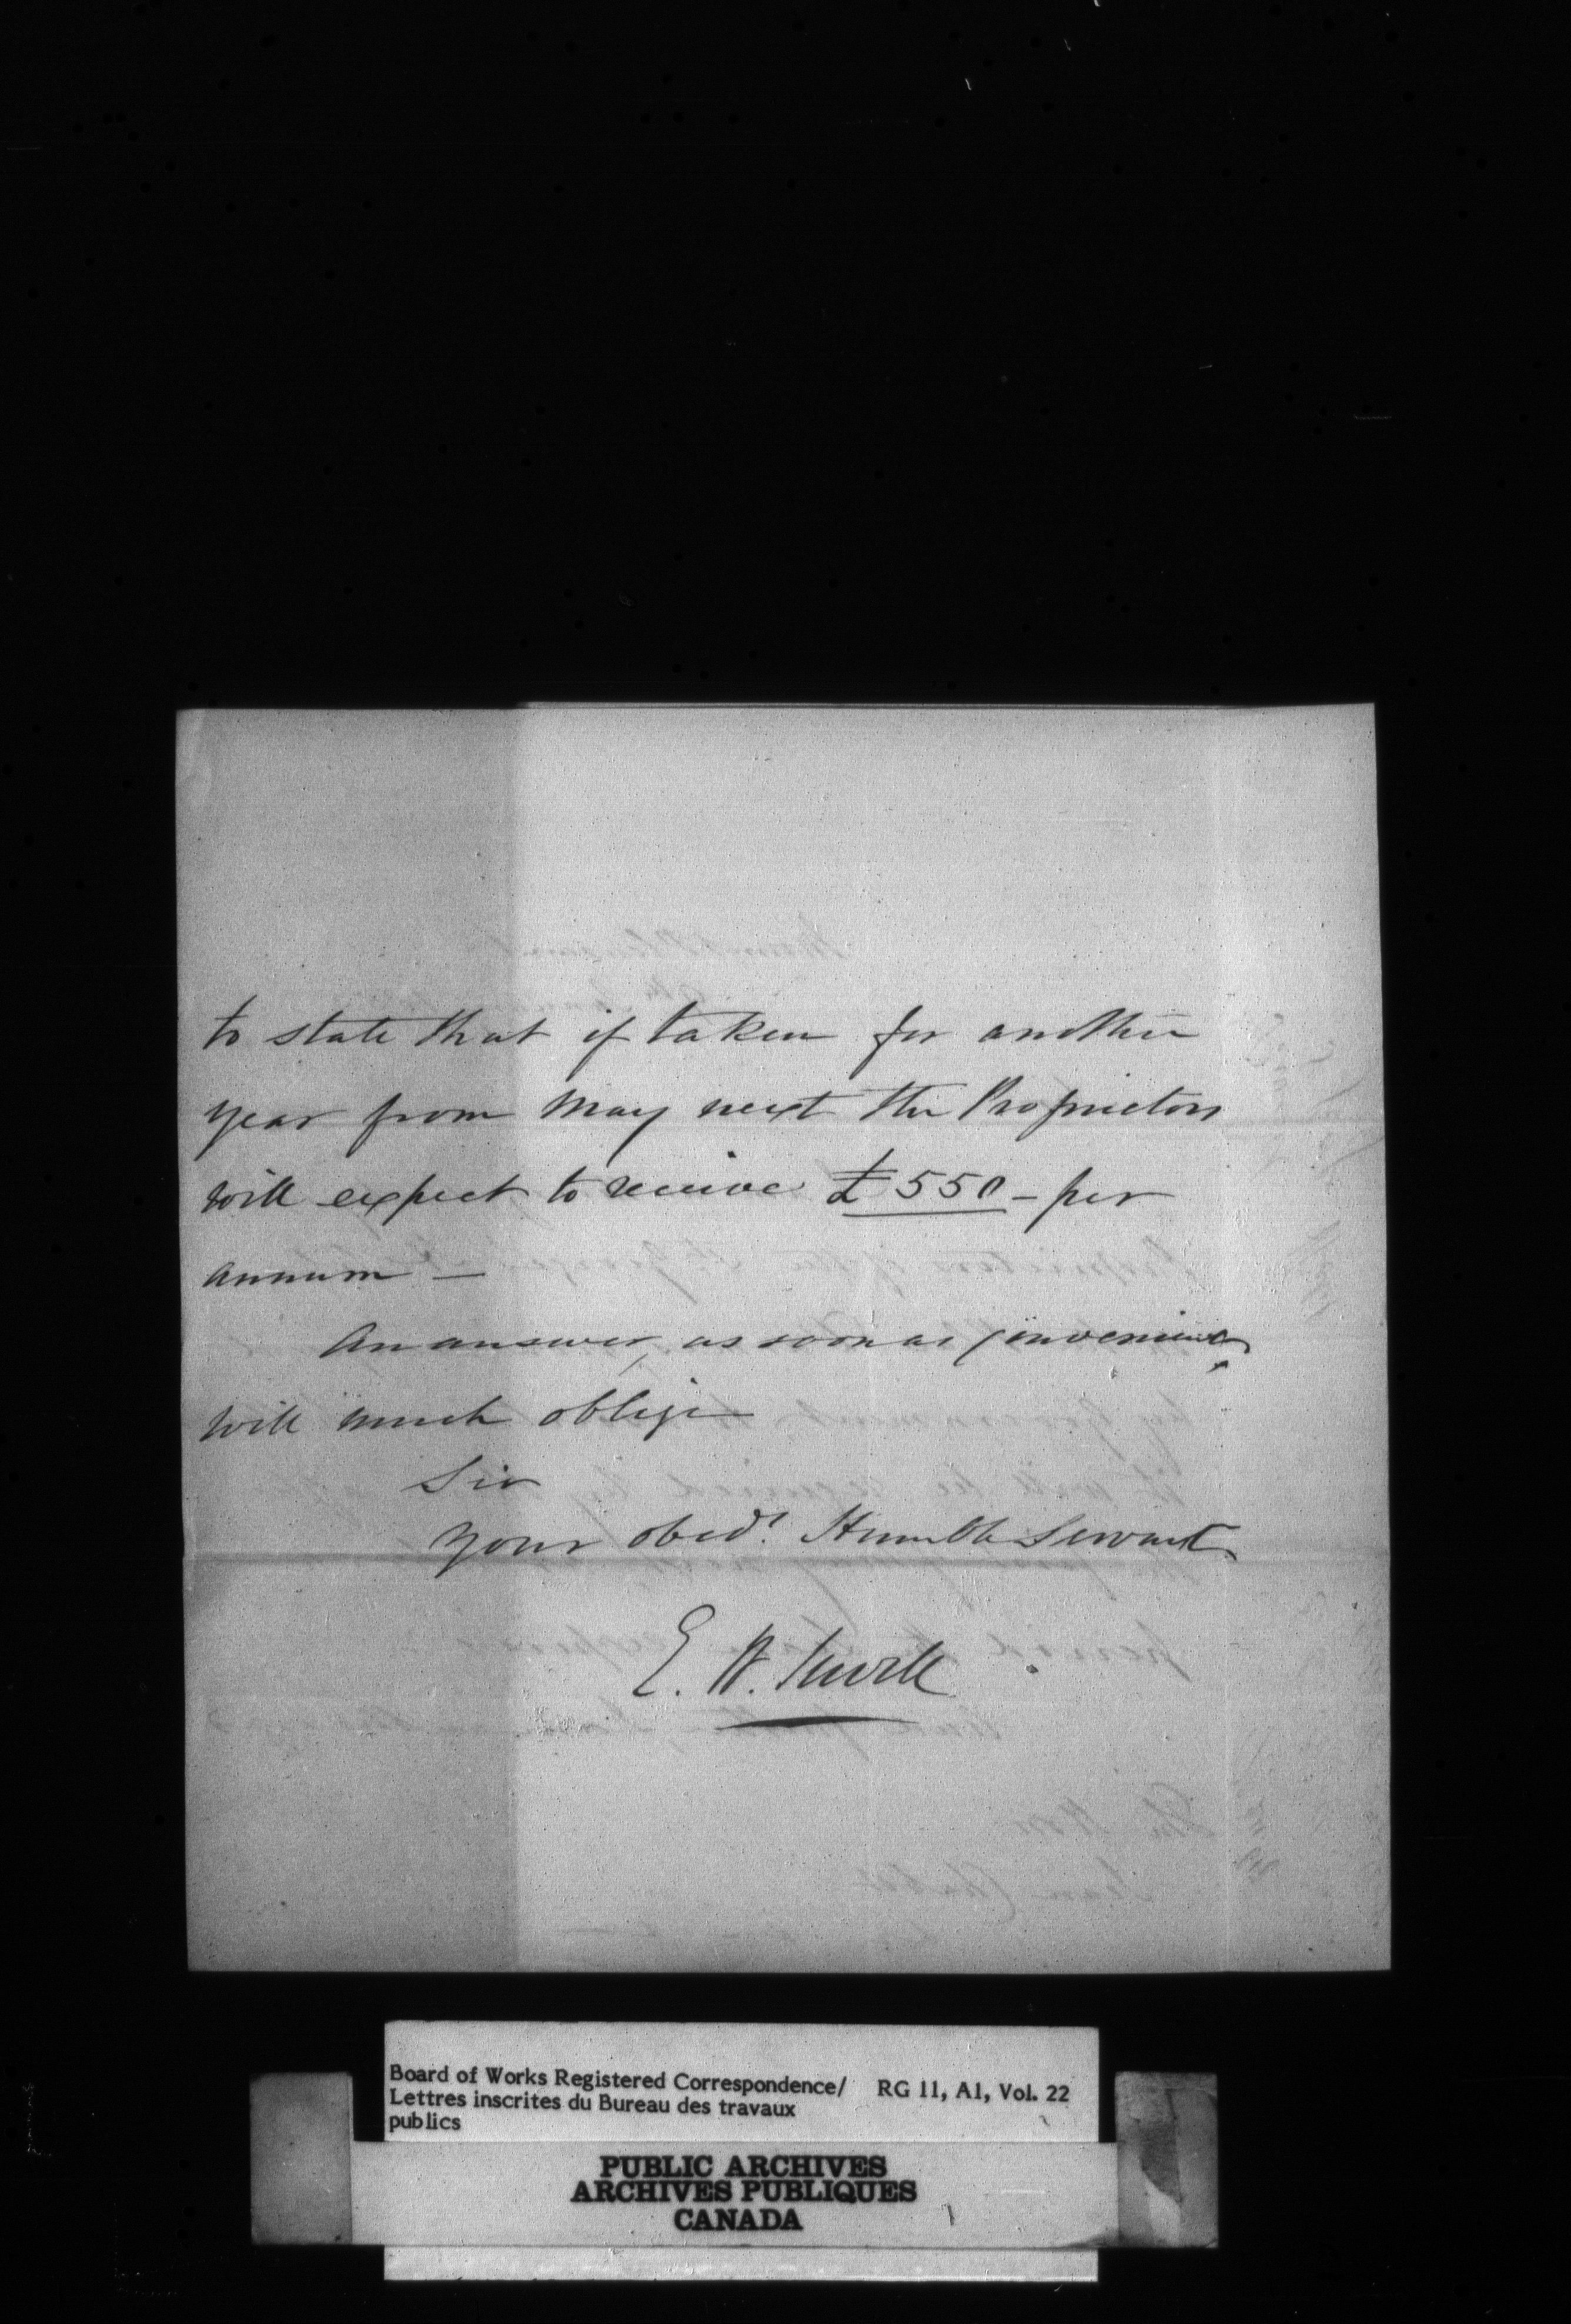 to state that if taken for another
year from May next the Proprietors
will expect to receive £550 - per
annum -
An answer, as soon as convenient,
will much oblige
Sir
your obed<sup>t</sup>. Humble Servant
E. W. Sewell
Board of Works Registered Correspondence/
Lettres inscrites du Bureau des travaux
publics
RG 11, A1, Vol. 22
PUBLIC ARCHIVES
ARCHIVES PUBLIQUES
CANADA